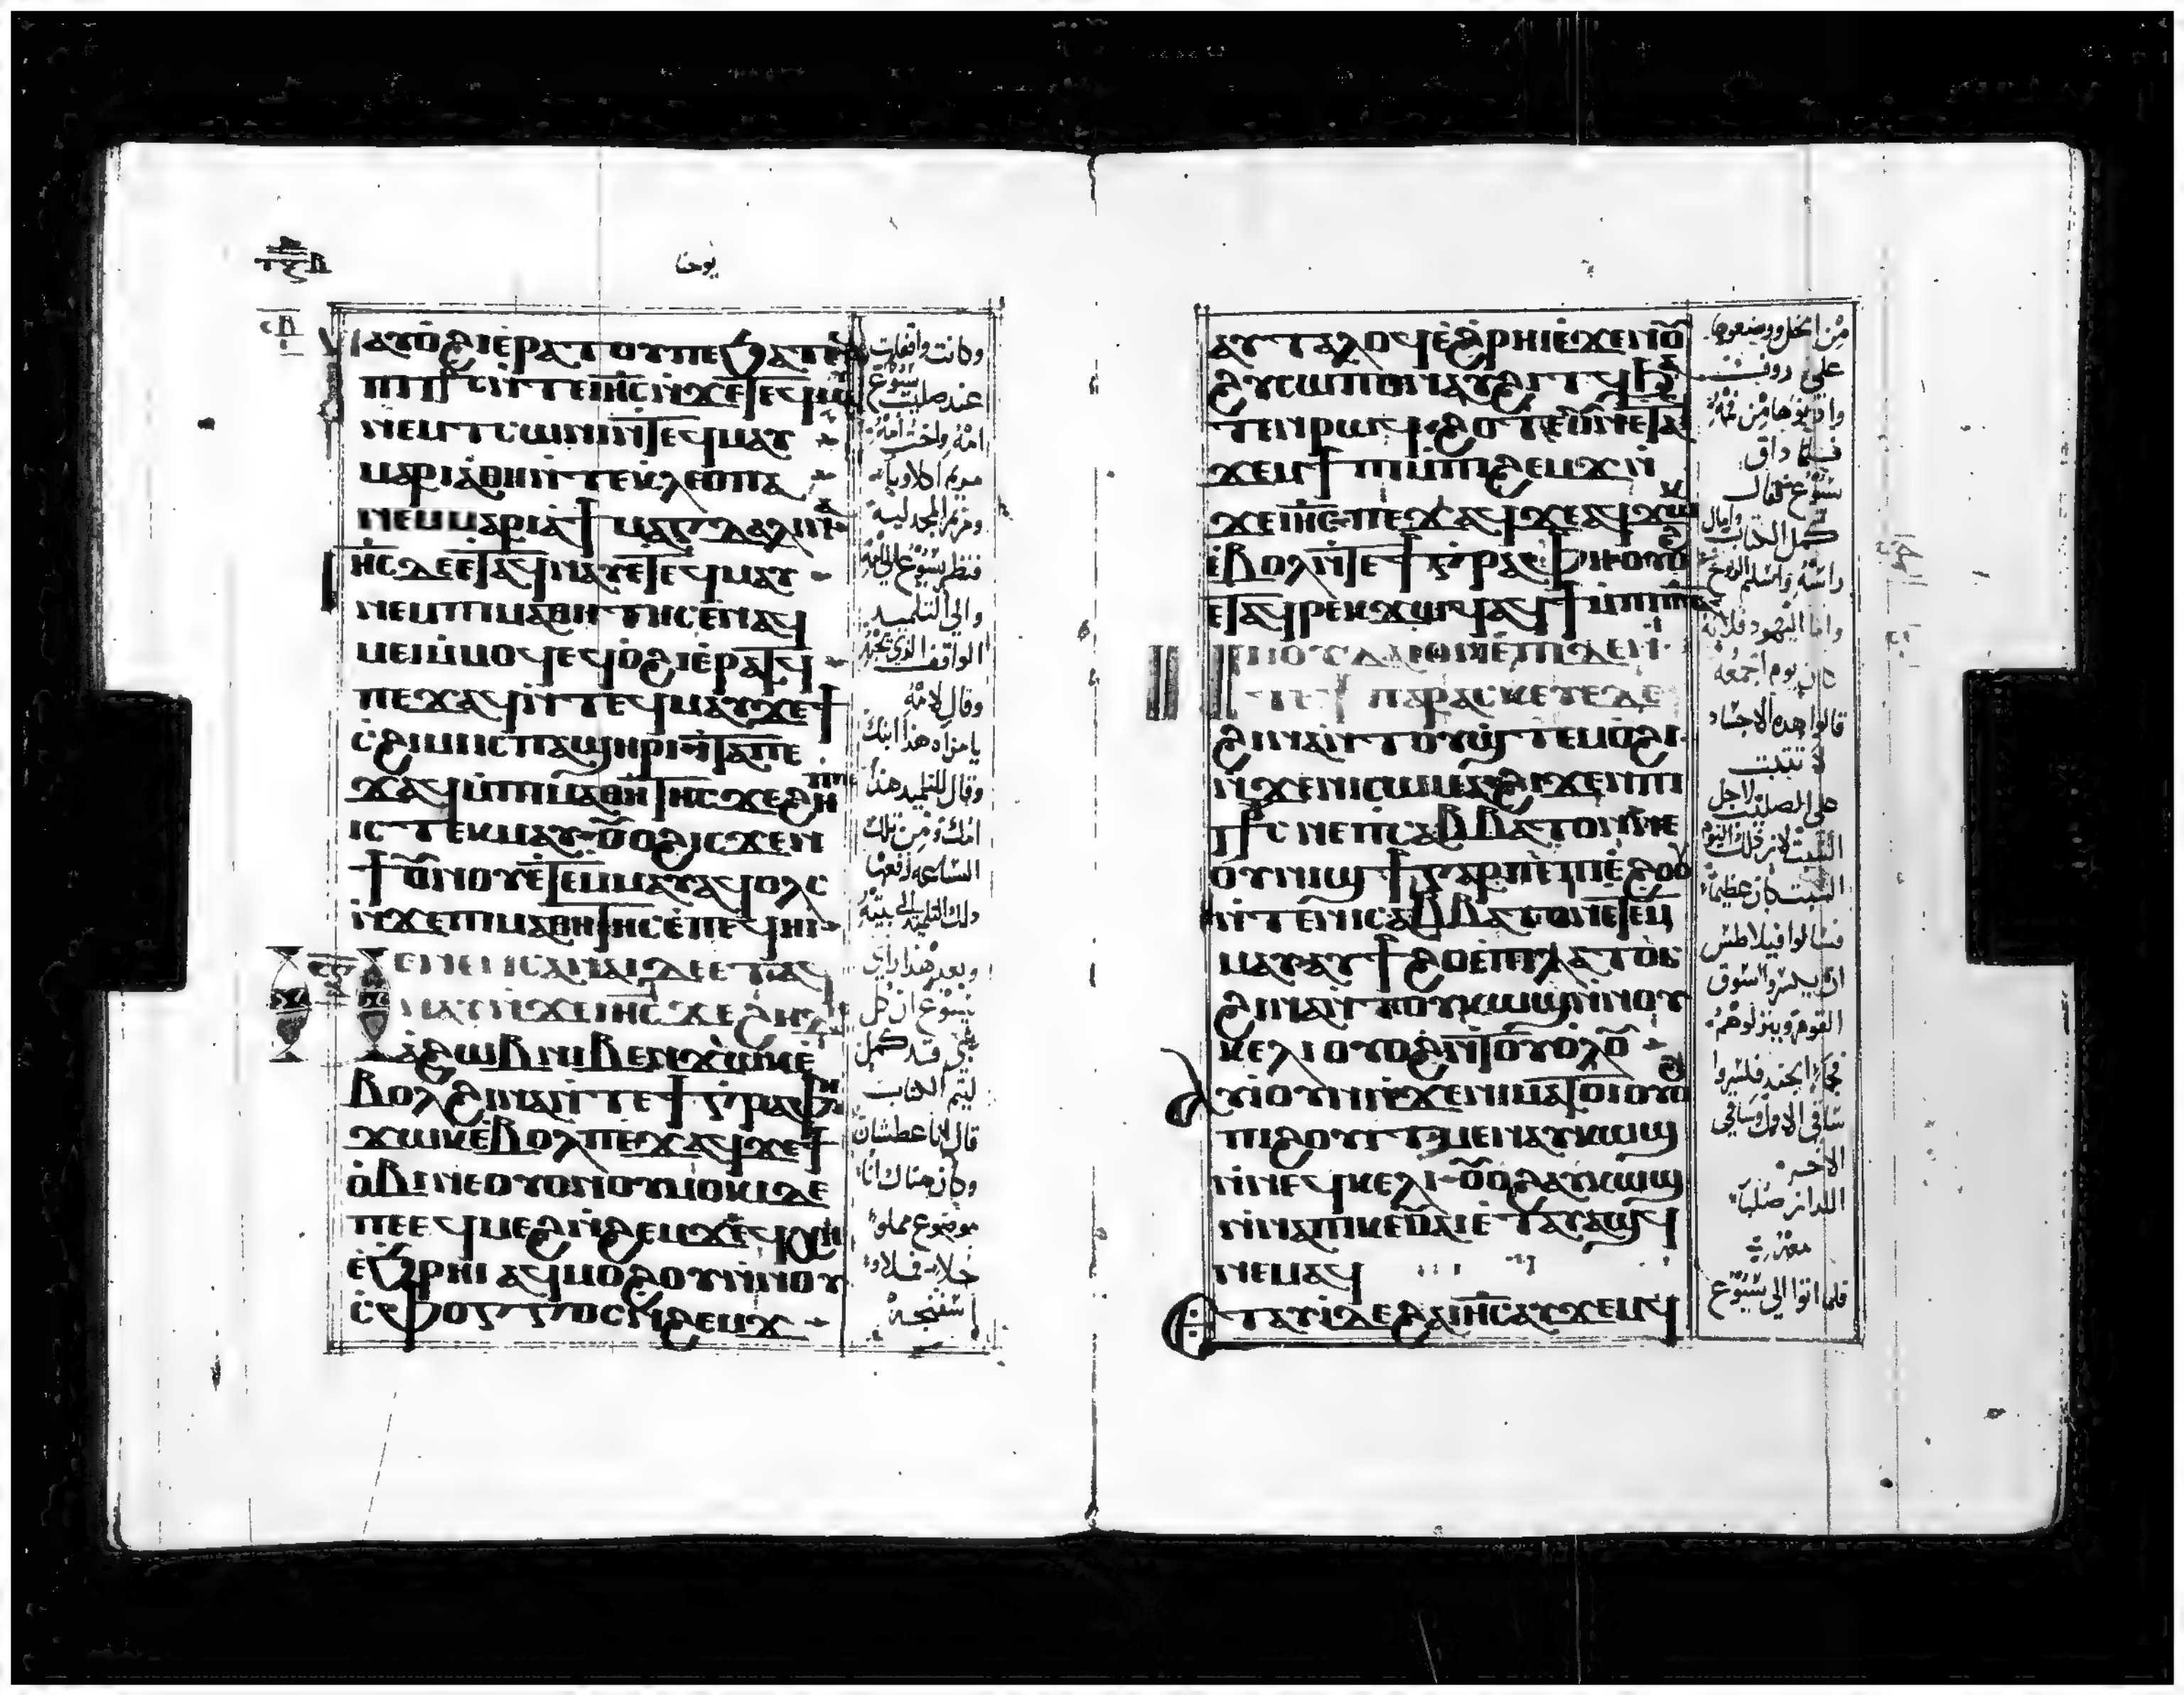 يوحنا
ⲛⲁⲩⲟ̀ϩⲓⲉ̀ⲣⲁⲧⲟⲩⲡⲉϧⲁⲧⲉⲛ
ⲛⲉⲙⲧⲥⲱⲛⲓⲛ̀ⲧⲉⲧⲉϥⲙⲁⲩ
ⲙⲁⲣⲓⲁ̀ⲑⲏⲛ̀ⲧⲉⲕⲗⲉⲟⲡⲁ
ⲛⲉⲙⲙⲁⲣⲓⲁ̀ϯⲙⲁⲅⲇⲁⲗⲓⲛⲏ
ⲓⲏ̅ⲥ̅ⲇⲉⲉⲧⲁϥⲛⲁⲩⲉⲧⲉϥⲙⲁⲩ
ⲛⲉⲙⲡⲓⲙⲁⲑⲏⲧⲏⲥⲉ̀ⲛⲁϥ
ⲙⲉⲓⲙ̀ⲙⲟϥⲉϥⲟ̀ϩⲓⲉ̀ⲣⲁⲧϥ
ⲡⲉϫⲁϥⲛ̀ⲧⲉϥⲙⲁⲩϫⲉϯ
ⲥϩⲓⲙⲓⲓⲥⲡⲁϣⲏⲣⲓⲛ̀ⲧⲁⲡⲉ
ϫⲁϥⲙ̀ⲡⲓⲙⲁⲑⲏⲧⲏⲥϫⲉϩⲏⲡⲡⲉ
ⲓⲥⲧⲉⲕⲙⲁⲩⲟⲩⲟϩⲓⲥϫⲉⲛ
ϯⲟⲩⲛⲟⲩⲉ̀ⲧⲉⲙⲙⲁⲩⲁϥⲟⲗⲥ
ⲛ̀ϫⲉⲡⲓⲙⲁⲑⲏⲧⲏⲥⲉ̀ⲡⲉϥⲏⲓ
ⲉⲛⲉⲛⲥⲁⲛⲁⲓⲇⲉⲉⲧⲁϥ
ⲛⲁⲩⲛ̀ϫⲉⲓⲏ̅ⲥ̅ϫⲉϩⲏⲇⲏ
ⲁ̀ϩⲱⲃⲛⲓⲃⲉⲛϫⲱⲕⲉ̀
ⲃⲟⲗϩⲓⲛⲁⲛ̀ⲧⲉϯⲅⲣⲁⲫⲏ
ϫⲱⲕⲉ̀ⲃⲟⲗⲡⲉϫⲁϥϫⲉϯ
ⲟ̀ⲃⲓⲛⲉⲟⲩⲟⲛⲟⲩⲙⲟⲕⲓⲇⲉ
ⲡⲉⲉϥⲙⲉϩⲛ̀ϩⲉⲙϫⲉϥⲭⲏ
ⲉ̀ϧⲣⲏⲓⲁϥⲙⲟϩⲟⲩⲛ̀ⲛⲟⲩ
ⲥⲫⲟⲅⲅⲟⲥⲛ̀ϩⲉⲙϫ
وكانت واقفات
عند صليب يسوع
امه واخت امه
مريم اكلاوبا
ومريم المجدلية
فنظر يسوع الى امه
والى التلميد
الواقف الذي يحبه
وقال لامه
يا مراه هذا ابنك
وقال للتلميد هذه
امك ومن تلك
الساعه اخدها
دلك التلميد الى بيته
وبعد هذا راى
يسوع ان كل
شي قد كمل
ليتم الكتاب
قال انا عطشان
وكان هناك انا
موضوع مملو
خلا فملاو
اسفنجة
ⲁⲩⲧⲁⲗⲟϥⲉ̀ϩⲣⲏⲓⲉ̀ϫⲉⲛⲟⲩ
ϩⲩⲥⲱⲡⲟⲛⲁⲩϩⲓⲧϥϧⲁ
ⲧⲉⲛⲣⲱϥϩⲟⲧⲉⲟⲩⲛⲉⲧⲁ
ϫⲉⲙϯⲡⲓⲙ̀ⲡⲓϩⲉⲙϫⲛ̀
ϫⲉⲓⲏ̅ⲥ̅ⲡⲉϫⲁϥϫⲉⲁϥϫⲱⲕ
ⲉ̀ⲃⲟⲗⲛ̀ϫⲉϯⲅⲣⲁⲫⲏⲟⲩⲟϩ
ⲉⲧⲁϥⲣⲉⲕϫⲱϥⲁϥϯⲙ̀ⲡⲓⲡⲛⲁ
ⲛⲓⲟⲩⲇⲁⲓⲉ̀ⲡⲓⲇⲉⲛ
ⲛⲉϯⲡⲁⲣⲁⲥⲕⲉⲩⲉⲇⲉ
ϩⲓⲛⲁⲛ̀ⲧⲟⲩϣⲧⲉⲙⲟϩⲓ
ⲛ̀ϫⲉⲛⲓⲥⲱⲙⲁϩⲓϫⲉⲛⲡⲓ
ⲟⲩⲛⲓϣϯⲅⲁⲣⲡⲉⲡⲓⲉ̀ϩⲟⲟⲩ
ⲛ̀ⲧⲉⲛⲓⲥⲁⲃⲃⲁⲧⲟⲛⲉ̀ⲧⲉⲙ
ⲙⲁⲩⲁⲩϯϩⲟⲉ̀ⲡⲓⲗⲁⲧⲟⲥ
ϩⲓⲛⲁⲛ̀ⲧⲟⲩⲕⲱϣⲛ̀ⲛⲟⲩ
ⲕⲉⲗⲓⲟⲩⲟϩⲛ̀ⲧⲟⲩⲟⲗⲟⲩ
ⲁⲩⲓⲟⲩⲛⲛ̀ϫⲉⲛⲓⲙⲁⲧⲟⲓⲟⲩⲟϩ
ⲡⲓϩⲟⲩⲓⲧⲙⲉⲛⲁⲩⲕⲱϣ
ⲛ̀ⲛⲉϥⲕⲉⲗⲓⲟⲩⲟϩⲁⲩⲕⲱϣ
ⲛ̀ⲛⲁⲡⲓⲕⲉⲟⲩⲁⲓⲉ̀ⲧⲁⲩⲁϣϥ
ⲛⲉⲙⲁϥ
ⲉⲧⲁⲩⲓ̀ⲇⲉϩⲁⲓⲏ̅ⲥ̅ⲁⲩϫⲉⲙϥ
من الخل ووضعوها
على زوفا
وادنوها من فمه
فلما داق
يسوع قال
كمل الكتاب وامال
راسه واسلم الروح
واما اليهود فلانه
كان يوم الجمعه
قالوا هده الاجساد
لا تتبت
على الصليب لاجل
السبت لان ذلك اليوم
السبت كان عظيما
فسالوا فيلاطس
ان يكسروا سوق
القوم وينزلوهم
فجاء الجند فكسروا
ساقي الاول وساقي
الاخر
اللدان صلبا
معه
فلما اتوا الى يسوع